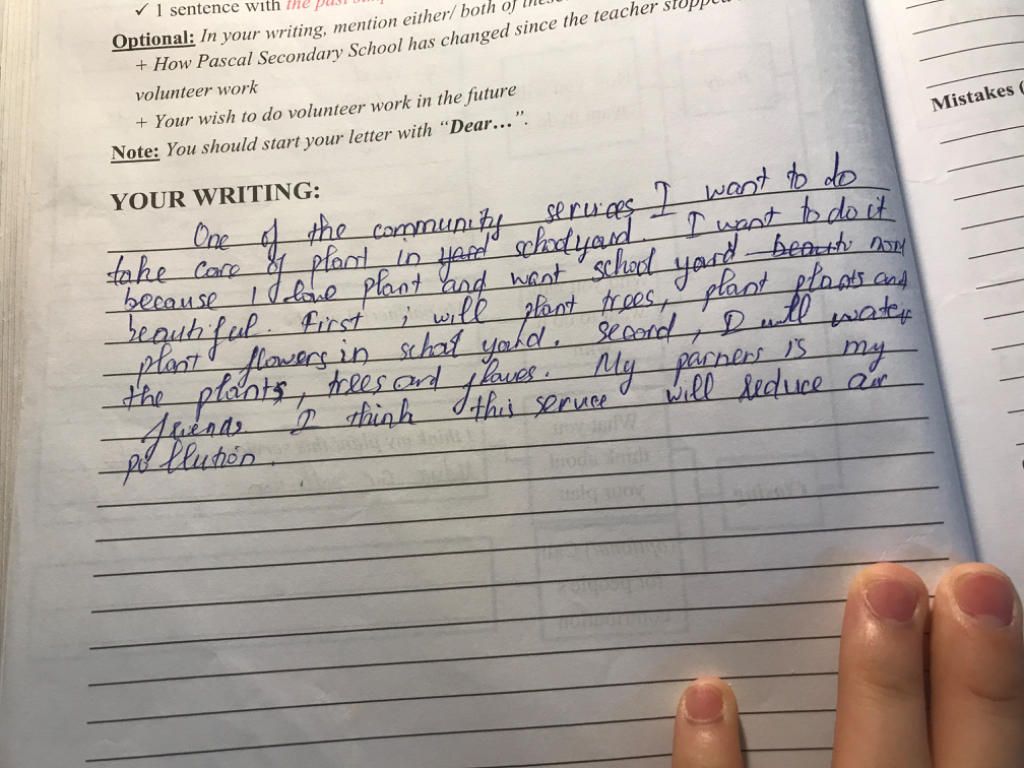 ✓ 1 sentence with the past
Optional: In your writing, mention either/ both of these
+ How Pascal Secondary School has changed since the teacher stopped
volunteer work
+ Your wish to do volunteer work in the future
Note: You should start your letter with “Dear…”.
Mistakes
YOUR WRITING:
One of the community services I want to do
take care of plant in yard schoolyard. I want to do it
because I love plant and want school yard beauti
beautiful. First i will plant trees, plant plants and
plant flowers in school yard. second, I will water
the plants, trees and flowes. My parners is my
friends I think this service will reduce air
pollution.